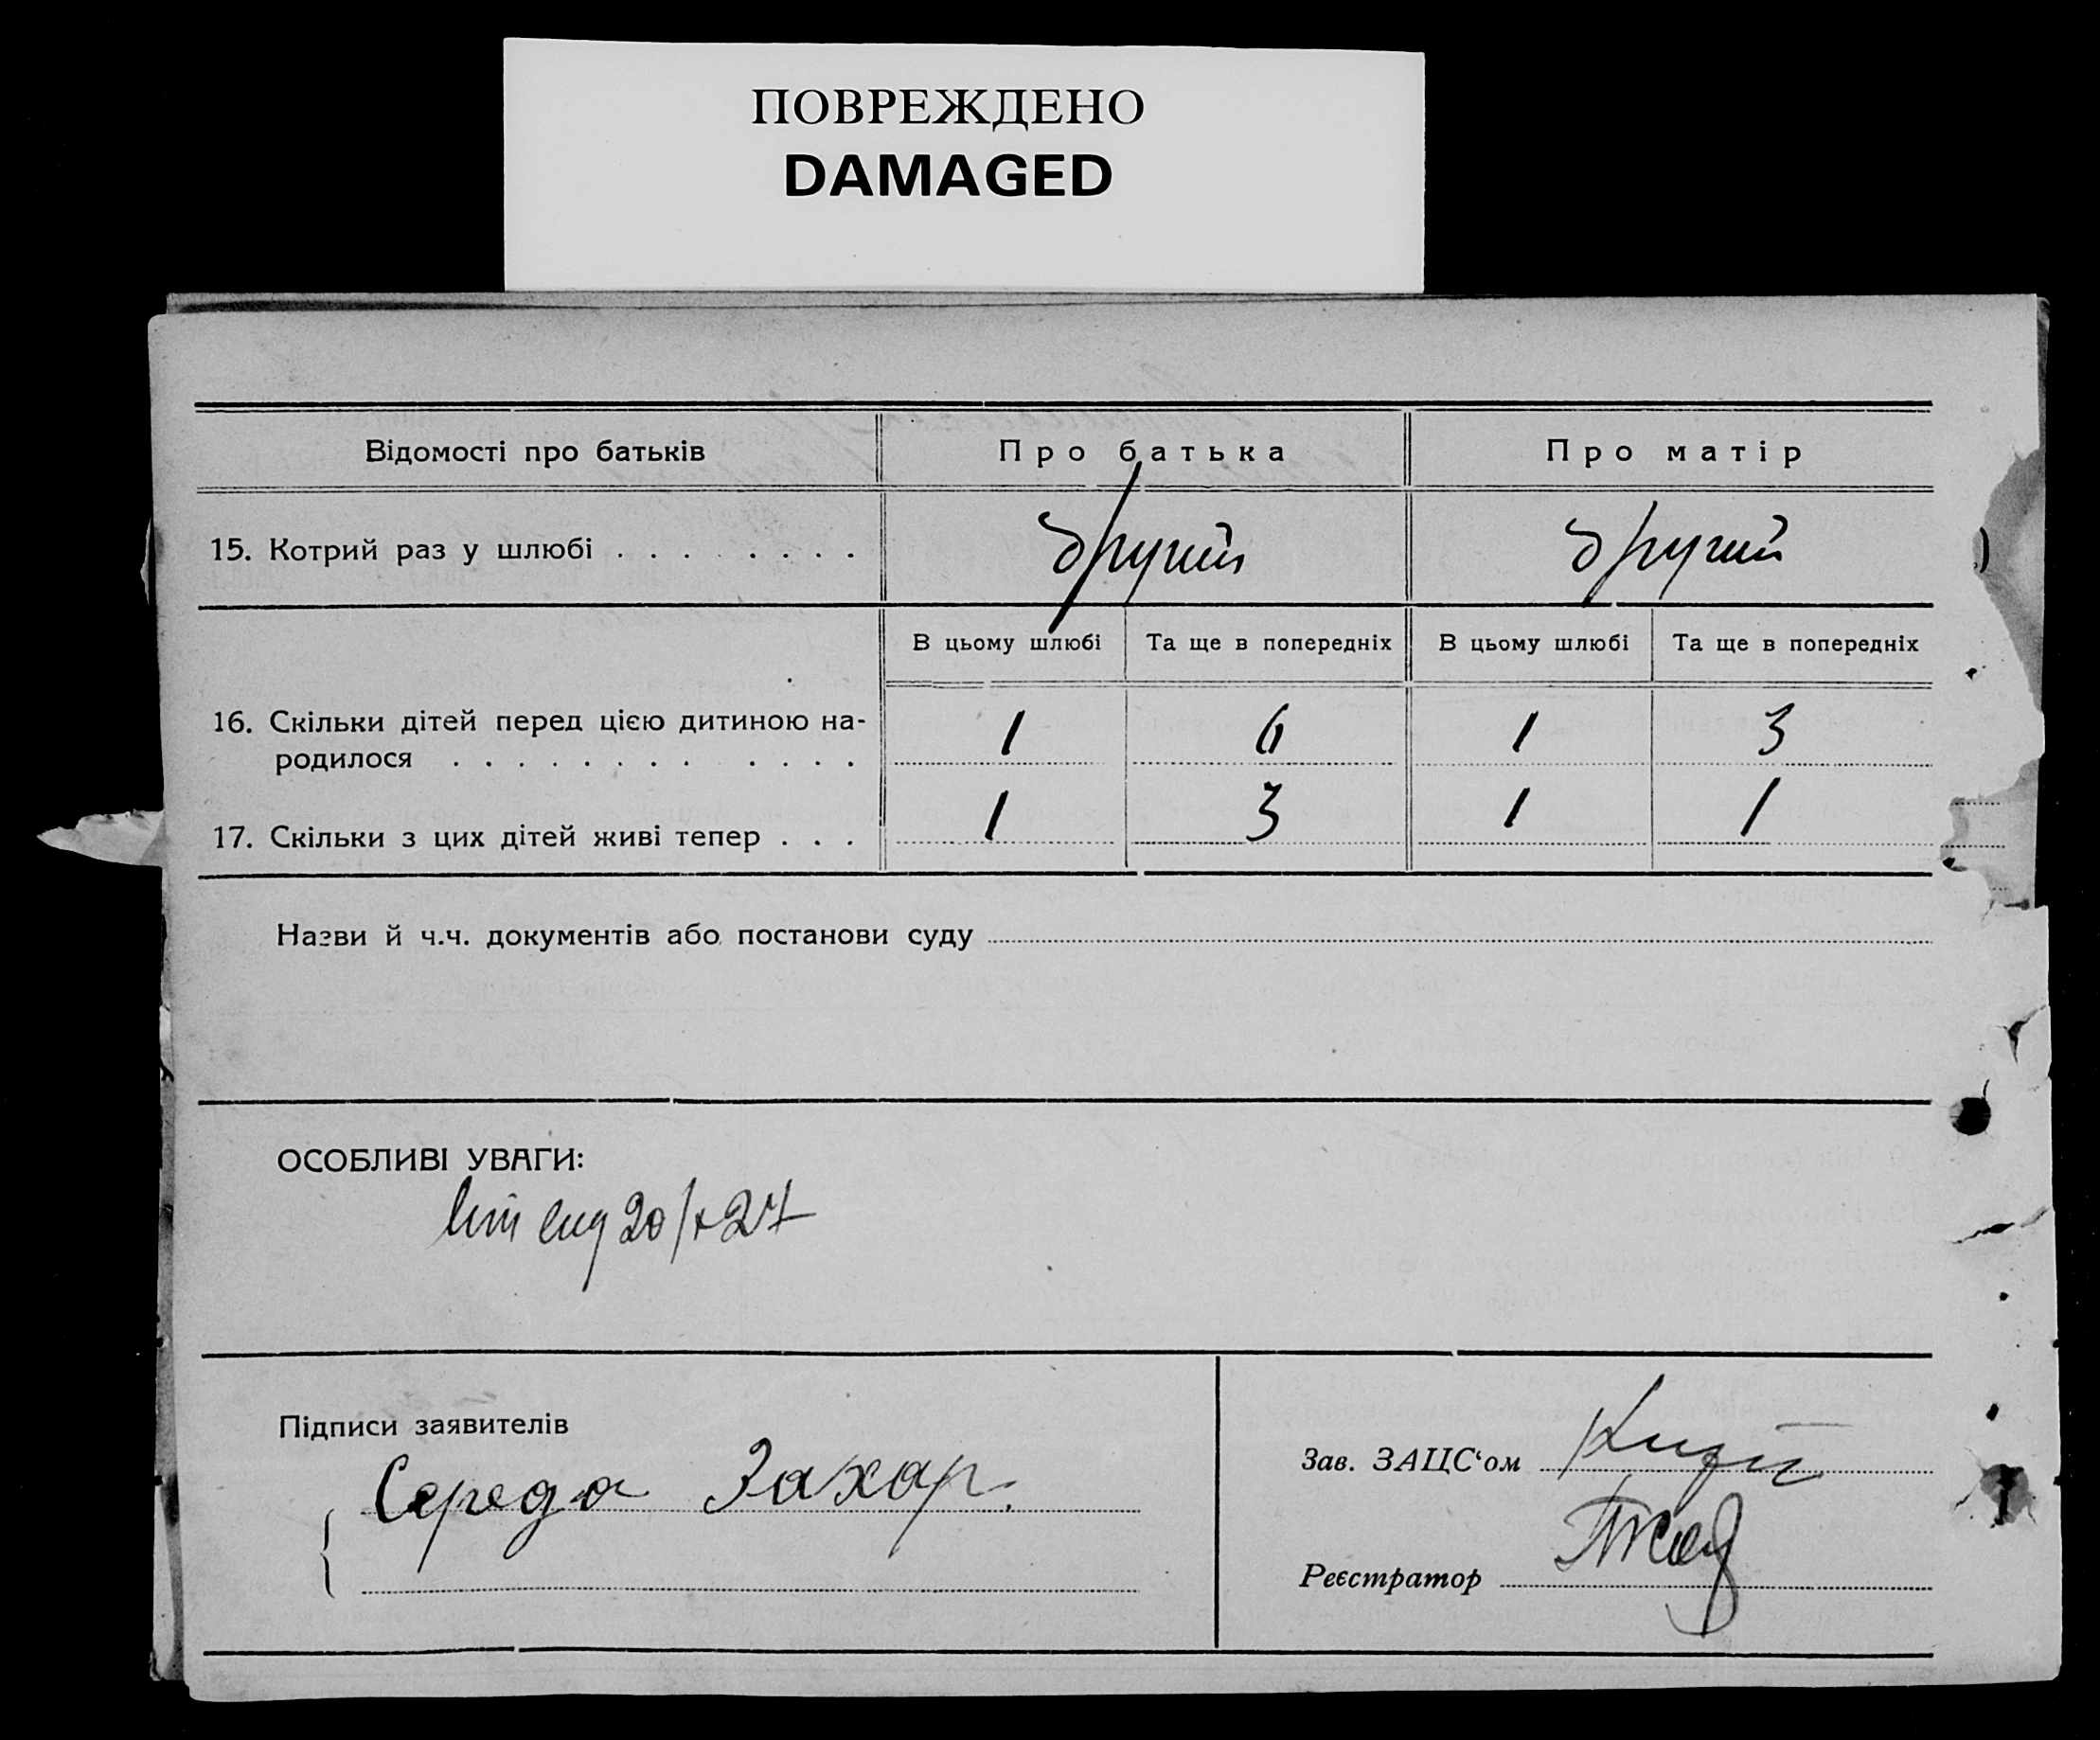 ПОВРЕЖДЕНО
DAMAGED
Відомості про батьків Про батька Про матір
15. Котрий раз у шлюбі . . . . . . . . другий другий
В цьому шлюбі Та ще в попередніх В цьому шлюбі Та ще в попередніх
16. Скільки дітей перед цією дитиною на-
родилося . . . . . . . . . . . . 1 6 1 3
17. Скільки з цих дітей живі тепер . . . 1 3 1 1
Назви й ч.ч. документів або постанови суду
ОСОБЛИВІ УВАГИ:
Підписи заявителів
Середа Захар.
Зав. ЗАЦС‘ом
Реєстратор